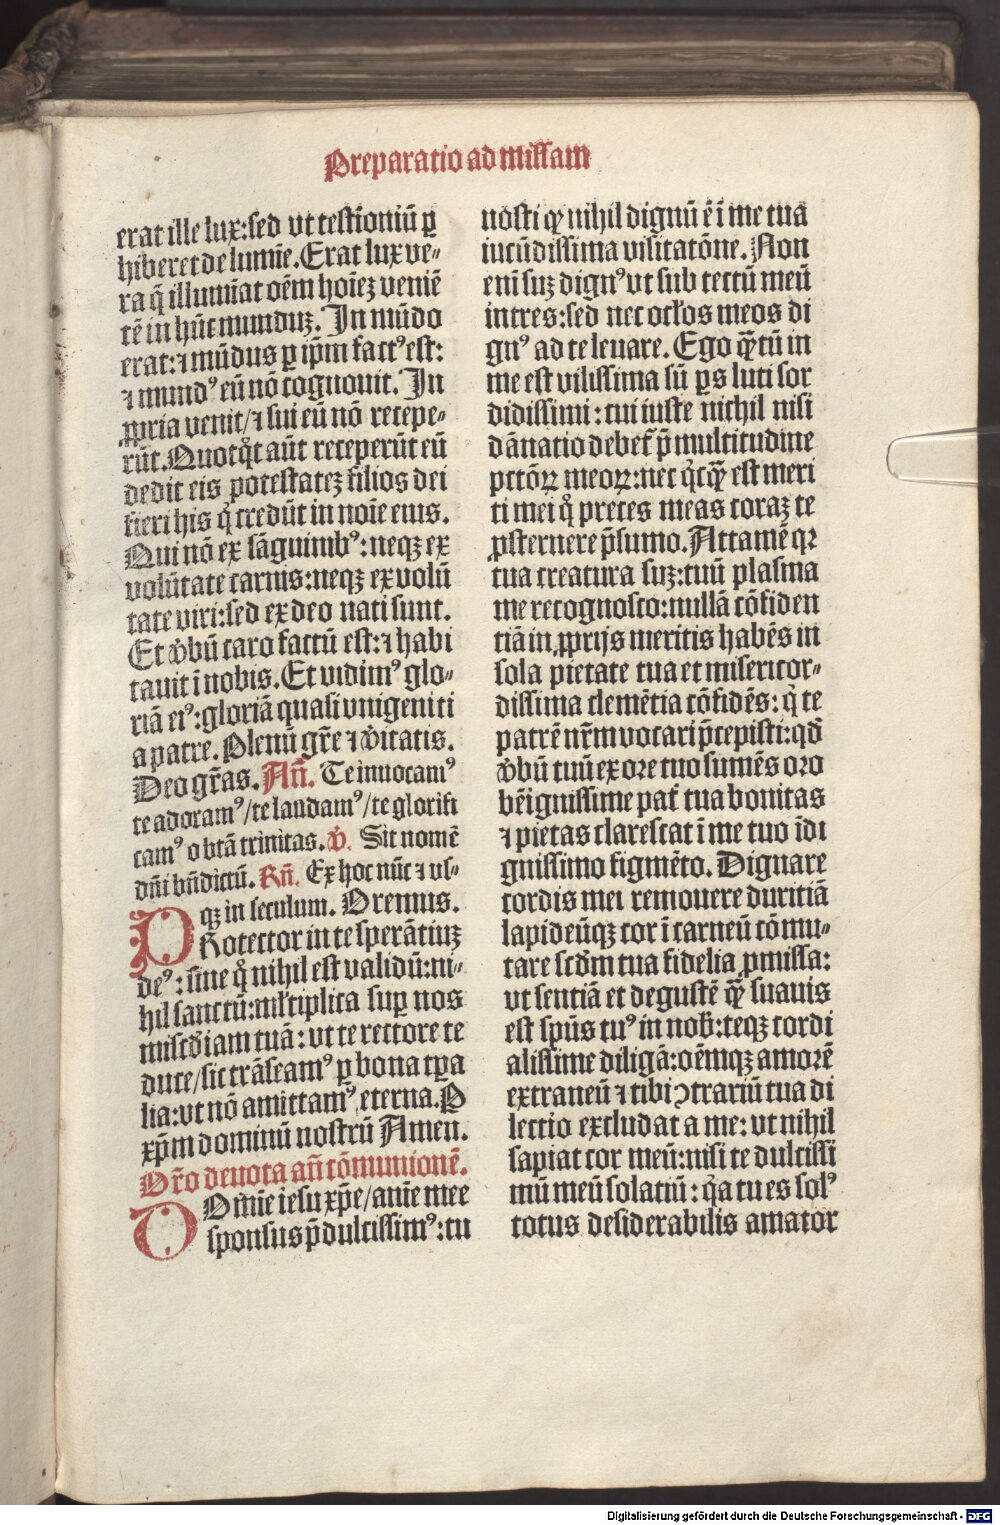 Preparatio ad missam
erat ille lux: sed vt testīoniū ꝑ
hiberet de lumīe. Erat lux ve⸗
ra q̄ illumīat oēm hoīeꝫ veniē
tē in hūc munduꝫ. In mūdo
erat: ⁊ mūdus ꝑ ip̄m factꝰ est:
⁊ mundꝰ eū nō cognouit. In
ꝓpria venit/⁊ sui eū nō recepe⸗
rūt. Quotqͦt aūt receperūt eū
dedit eis potestateꝫ filios dei
fieri his qͥ credūt in noīe eius.
Qui nō ex sāguinibꝰ: neqꝫ ex
volūtate carnis: neqꝫ ex volū
tate viri: sed ex deo nati sunt.
Et v̄bū caro factū est: ⁊ habi
tauit ī nobis. Et vidimꝰ glo⸗
riā eiꝰ: gloriā quasi vnigeniti
a patre. Plenū gr̄e ⁊ v̄itatis.
Deo gr̄as. Añ. Te inuocamꝰ
te adoramꝰ/te laudamꝰ/te glorifi
camꝰ o btā trinitas. v̄. Sit nomē
dn̄i bn̄dictū. Rn̄. Ex hoc nūc ⁊ vs⸗
qꝫ in seculum. Oremus.
PRotector in te sperātiuꝫ
deꝰ: sine qͦ nihil est validū: ni⸗
hil sanctū: ml̓tiplica suꝑ nos
mīscd̓iam tuā: vt te rectore te
duce/sic trāseamꝰ ꝑ bona tꝑa
lia: vt nō amittamꝰ eterna. P
xp̄m dominū nostrū Amen.
Or̄o deuota añ cōmunionē.
ODn̄ie iesu xp̄e/anīe mee
sponsus p̄dulcissimꝰ: tu
nosti qꝙ nihil dignū ē ī me tua
iucūdissima visitatōne. Non
enī suꝫ dignꝰ vt sub tectū meū
intres: sed nec ocl̓os meos di
gnꝰ ad te leuare. Ego qꝙtū in
me est vilissima sū ꝑs luti sor
didissimi: cui iuste nichil nisi
dānatio debet᷑ p̄ multitudine
pctōꝝ meoꝝ: nec qͥcꝙ est meri
ti mei qͦ preces meas coraꝫ te
ꝓsternere p̄sumo. Attamē qꝛ
tua creatura suꝫ: tuū plasma
me recognosco: nullā cōfiden
tiā in ꝓprijs meritis habēs in
sola pietate tua et misericor⸗
dissima clemētia cōfidēs: qͥ te
patrē nr̄m vocari p̄cepisti: qd̄
v̄bū tuū ex ore tuo sumēs oro
bēignissime pat᷑ tua bonitas
⁊ pietas clarescat ī me tuo īdi
gnissimo figmēto. Dignare
cordis mei remouere duritiā
lapideūqꝫ cor ī carneū cōmu⸗
tare scd̄m tua fidelia ꝓmissa:
vt sentiā et degustē ꝙ̄ suauis
est spūs tuꝰ in nob̄: teqꝫ cordi
alissime diligā: oēmqꝫ amorē
extraneū ⁊ tibi ↄtrariū tua di
lectio excludat a me: vt nihil
sapiat cor meū: nisi te dulcissi
mū meū solatiū: qͥa tu es solꝰ
totus desiderabilis amator
Digitalisierung gefördert durch die Deutsche Forschungsgemeinschaft - DFG